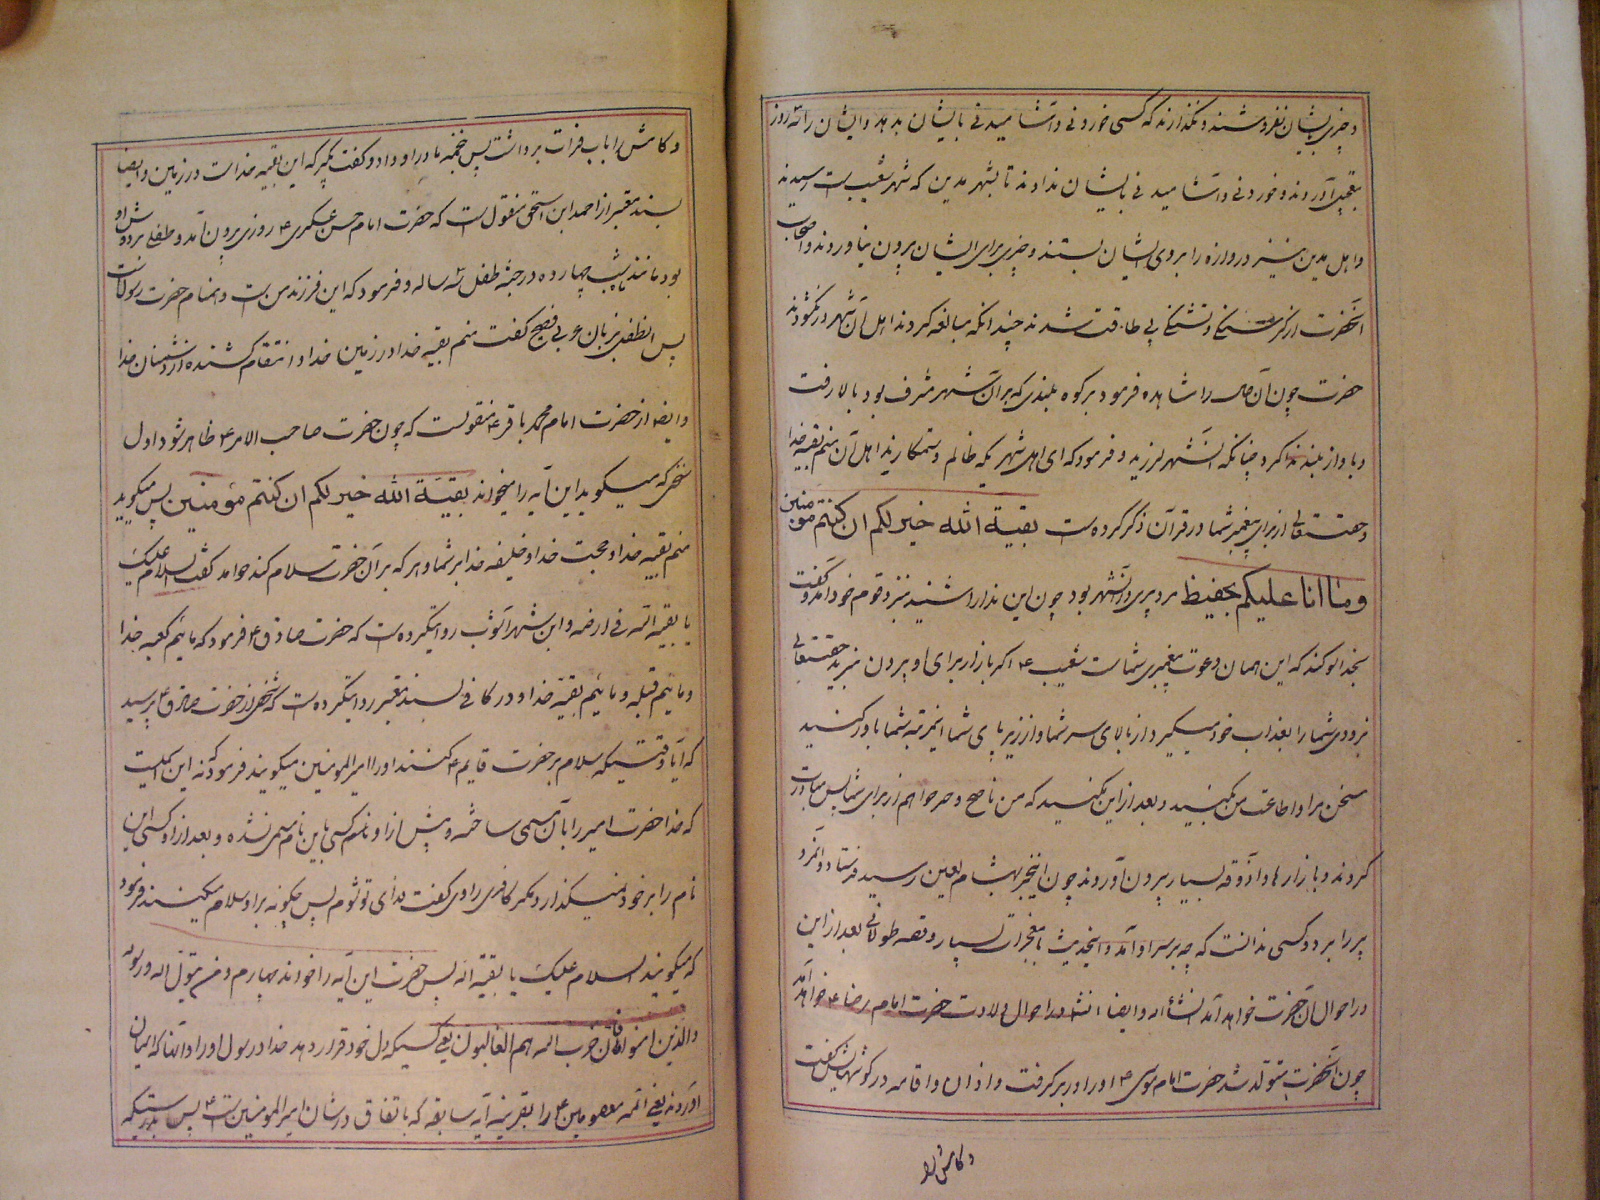 و چیزی بایشان نفروشند و نگذارند که کسی خوردنی و آشامیدنی بایشان بدهد و ایشان را سه روز
بتعجیل آوردند و خوردنی و آشامیدنی بایشان ندادند تا بشهر مدین که شهر شعیب است رسیدند
و اهل مدین نیز دروازه را بروی ایشان بستند و چیزی برای ایشان بیرون نیاوردند و اصحاب
آنحضرت از گرسنگی و تشنگی بی طاقت شدند چندانکه مبالغه کردند اهل آن شهر در نگشودند
حضرت چون آن حال را مشاهده فرمود بر کوه بلندی که بر آن شهر مشرف بود بالا رفت
و بآواز بلند ندا کرد چنانکه آنشهر لرزید و فرمود که ای اهل شهریکه ظالم و ستمکارید اهل آن منم بقیه خدا
و حقتعالی از برای پیغمبر شما در قرآن ذکر کرده است بقیة الله خیر لکم ان کنتم مؤمنین
وما انا علیکم بحفیظ مرد پیری در آنشهر بود چون این ندا را شنید بنزد قوم خود آمد و گفت
بخدا سوگند که این همان دعوت پیغمبری شماست شعیب ع اگر بازار برای او بیرون نبرید حقتعالی
بزودی شما را بعذاب خود میگیرد از بالای سر شما و از زیر پای شما اینمرتبه شما باور کنید
سخن مرا و اطاعت من بکنید و بعد از این نکنید که من ناصح و خیرخواهم از برای شما پس مبادرت
کردند و بازارها و آذوقه بسیار بیرون آوردند چون اینخبر بهشام لعین رسید فرستاد و آنمرد
پیر را برد و کسی ندانست که چه بر سر او آمد و اینحدیث با معجزات بسیار و قصه طولانی بعد از این
در احوال آن حضرت خواهد آمد انشاء الله و ایضا انشاء الله در احوال ولادت حضرت امام رضا ع خواهد آمد
چون آنحضرت متولد شد حضرت امام موسی ع او را در بر گرفت و اذان و اقامه در گوشهایش گفت
و کامش را
و کامش را بآب فرات برداشت پس خجنه مادر او داد و گفت بگیر که این بقیه خداست در زمین و ایضا
بسند معتبر از احمد ابن اسحق منقول است که حضرت امام حسن عسکری ع روزی بیرون آمد و طفلی بر دوش او
بود مانند ماه شب چهارده در جثه طفل سه ساله و فرمود که این فرزند من است و همنام حضرت رسولست
پس آنطفل بزبان عربی فصیح گفت منم بقیه خدا در زمین خدا و انتقام کشنده از دشمنان خدا
و ایضا از حضرت امام محمد باقر ع منقولست که چون حضرت صاحب الامر ع ظاهر شود اول
سخنی که میگوید این آیه را میخواند بقیة الله خیر لکم ان کنتم مؤمنین پس میگوید
منم بقیه خدا و حجت خدا و خلیفه خدا بر شما و هر که بر آن حضرت سلام کند خواهد گفت السلام علیک
یا بقیه الله فی ارضه و ابن شهرآشوب روایتکرده است که حضرت صادق ع فرمود که مائیم کعبه خدا
و مائیم قبله و مائیم بقیه خدا و در کافی بسند معتبر روایتکرده است که شخصی از حضرت صادق ع پرسید
که آیا وقتیکه سلام بر حضرت قایم ع کنند او را امیرالمومنین میگویند فرمود که نه این اسمیست
که خدا حضرت امیر را بآن مسمی ساخته و پیش از او نام کسی باین نام مسمی نشده و بعد از او کسی این
نام را بر خود نمیگذارد مگر کافری راوی گفت فدای تو شوم پس چگونه بر او سلام میکنند فرمود
که میگویند السلام علیک یا بقیه الله پس حضرت این آیه را خواند چهارم و من یتول الله و رسوله
والذین امنوا فان حزب الله هم الغالبون یعنی کسیکه ولی خود قرار دهد خدا و رسول او را و آنانکه ایمان
آوردند یعنی ائمه معصومین ع را بقرینه آیه سابقه که باتفاق در شان امیرالمومنین است پس بدرستیکه